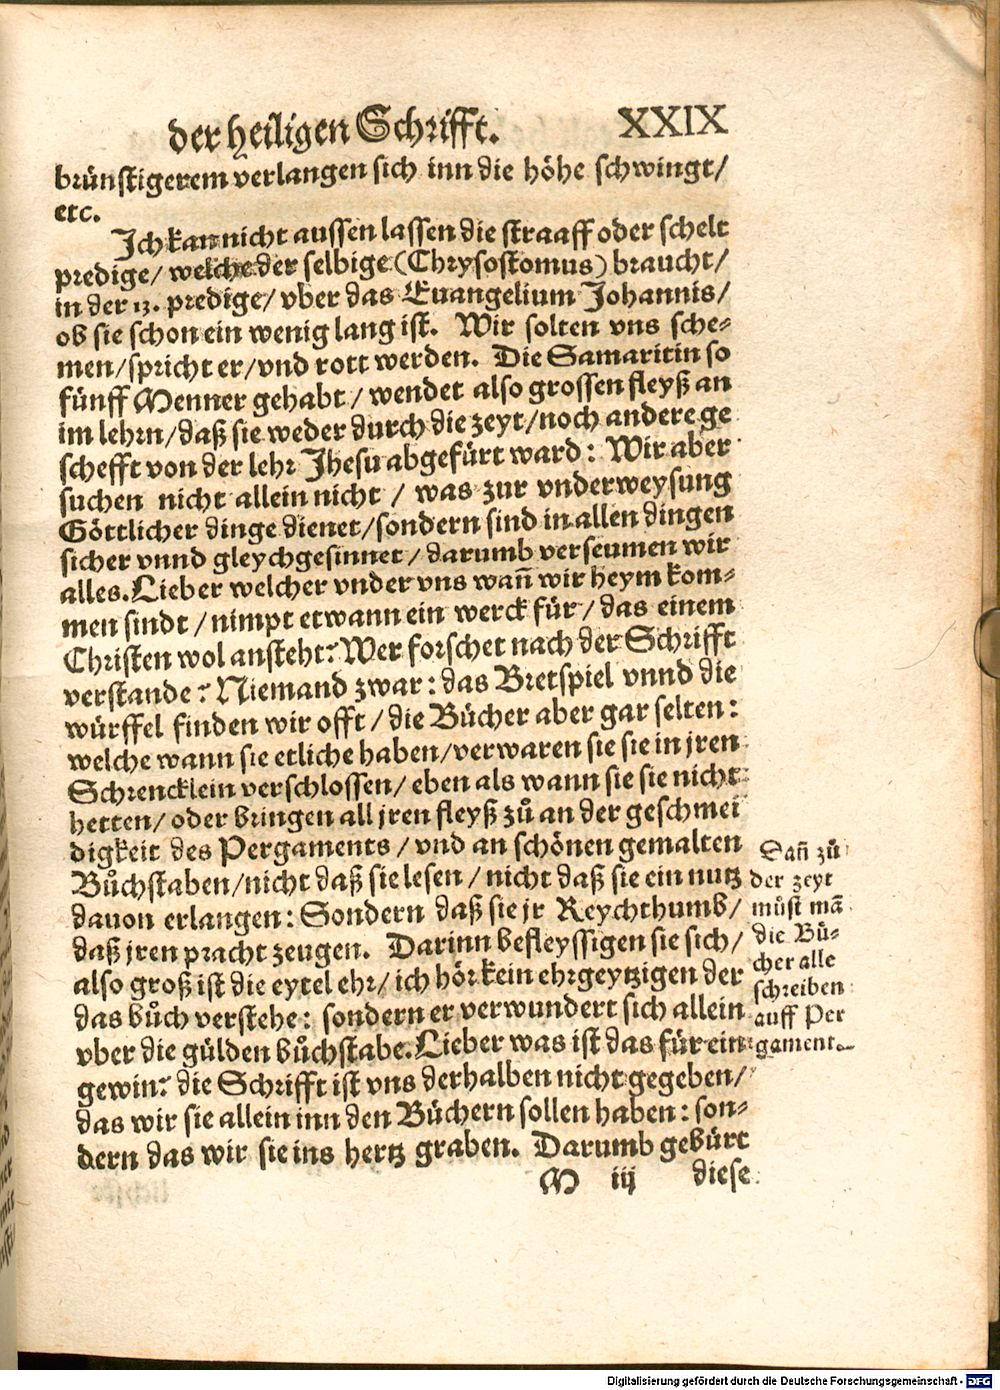 der heiligen Schrifft. XXIX
brünstigerem verlangen sich inn die höhe schwingt/
etc.
Ich kan nicht aussen lassen die straaff oder schelt
predige/ welche der selbige (Chrysostomus) braucht/
in der 13. predige/ vber das Euangelium Johannis/
ob sie schon ein wenig lang ist. Wir solten vns sche⸗
men/ spricht er/ vnd rott werden. Die Samaritin so
fünff Menner gehabt/ wendet also grossen fleyß an
im lehrn/ daß sie weder durch die zeyt/ noch andere ge
schefft von der lehr Jhesu abgefürt ward: Wir aber
suchen nicht allein nicht/ was zur vnderweysung
Göttlicher dinge dienet/ sondern sind in allen dingen
sicher vnnd gleychgesinnet/ darumb verseumen wir
alles. Lieber welcher vnder vns wañ wir heym kom⸗
men sindt/ nimpt etwann ein werck für/ das einem
Christen wol ansteht? Wer forschet nach der Schrifft
verstande? Niemand zwar: das Bretspiel vnnd die
würffel finden wir offt/ die Bücher aber gar selten:
welche wann sie etliche haben/ verwaren sie sie in jren
Schrencklein verschlossen/ eben als wann sie sie nicht
hetten/ oder bringen all jren fleyß zů an der geschmei
digkeit des Pergaments/ vnd an schönen gemalten
Bůchstaben/ nicht daß sie lesen/ nicht daß sie ein nutz
dauon erlangen: Sondern daß sie jr Reychthumb/
daß jren pracht zeugen. Darinn befleyssigen sie sich/
also groß ist die eytel ehr/ ich hör kein ehrgeytzigen der
das bůch verstehe: sondern er verwundert sich allein
vber die gülden bůchstabe. Lieber was ist das für ein
gewin? die Schrifft ist vns derhalben nicht gegeben/
das wir sie allein inn den Büchern sollen haben: son⸗
dern das wir sie ins hertz graben. Darumb gebürt
M iij diese
Dañ zů
der zeyt
můst mã
die Bü⸗
cher alle
schreiben
auff Per
gament.
Digitalisierung gefördert durch die Deutsche Forschungsgemeinschaft - DFG